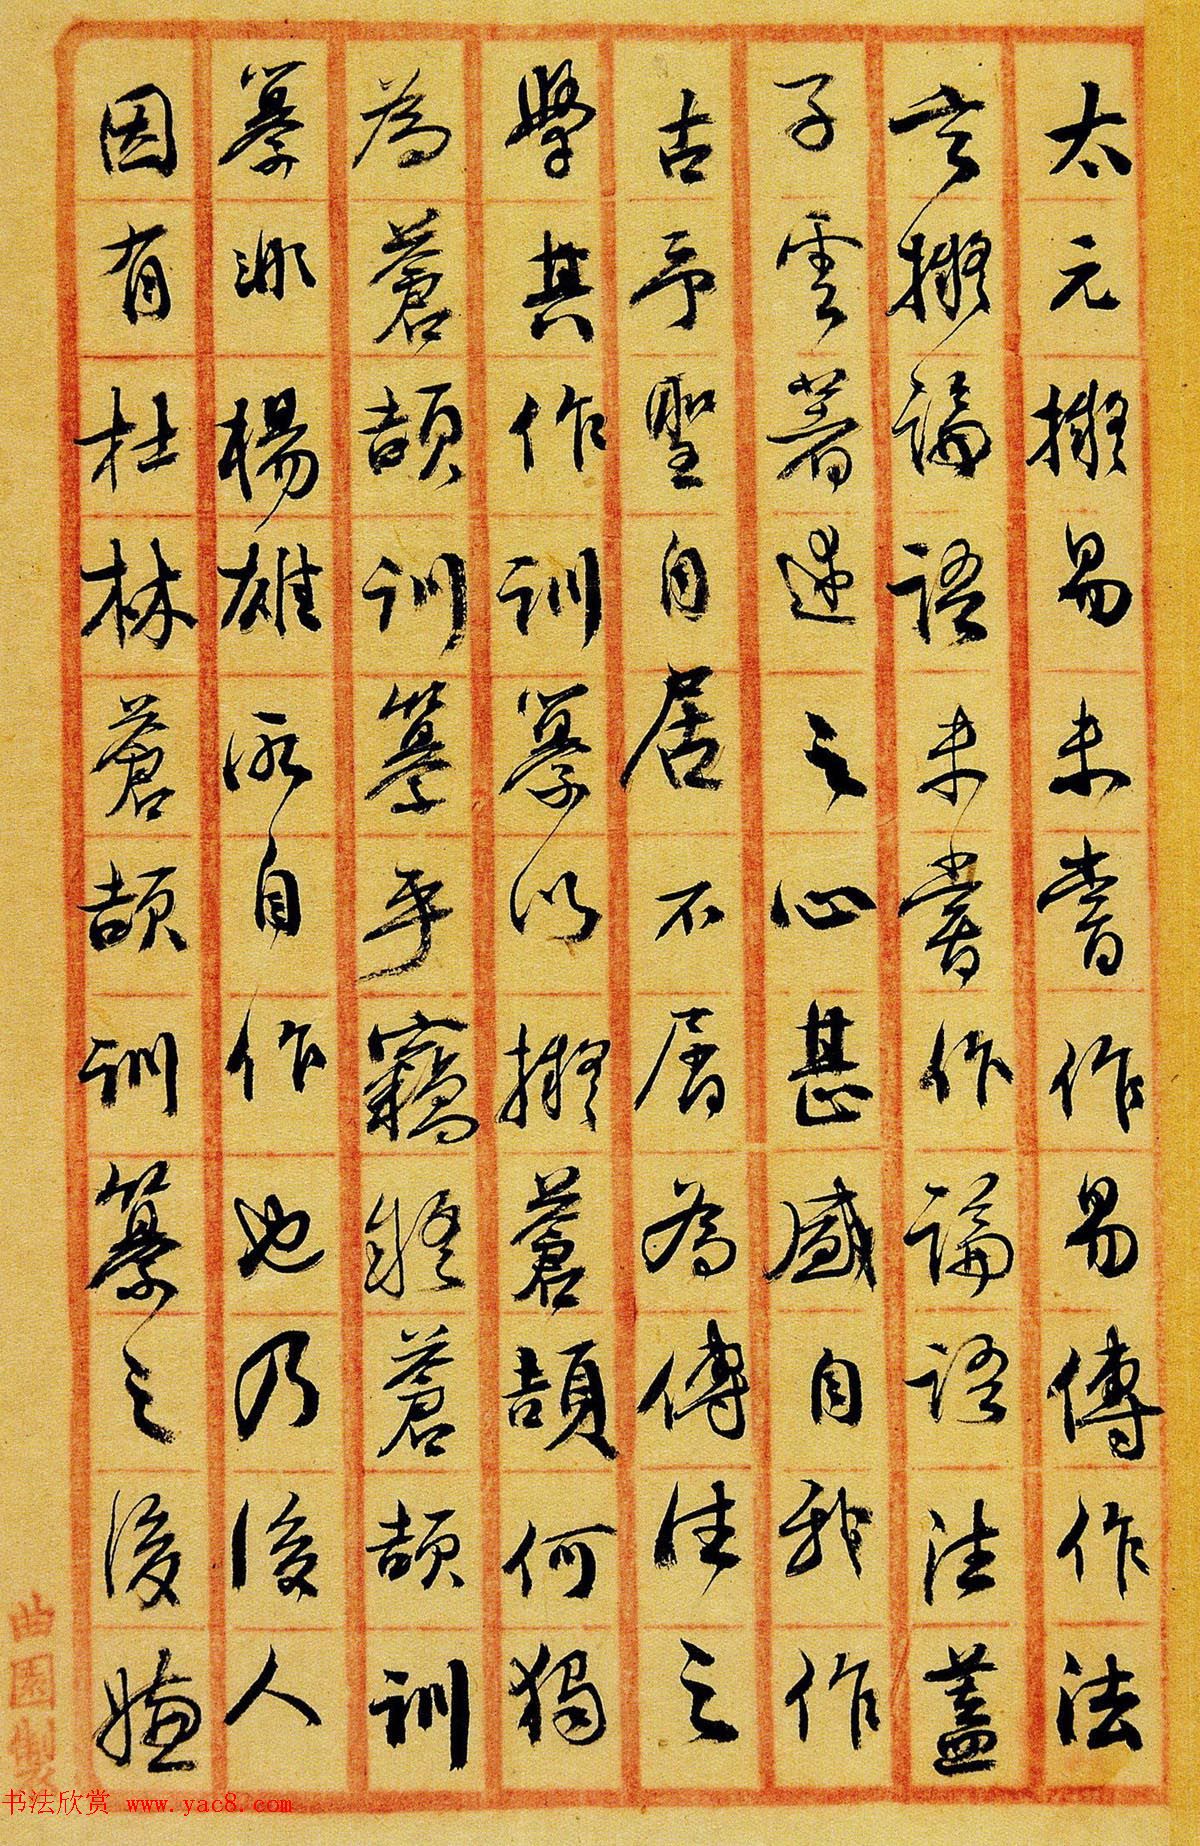 太元擬易未嘗作易傳作法
言擬論語未嘗作論語注蓋
子雲著述之心甚盛自我作
古予聖自居不屑為傳注之
學其作訓纂以擬蒼頡何獨
為蒼頡訓纂乎竊疑蒼頡訓
纂非楊雄所自作也乃後人
因有杜林蒼頡訓纂之後
曲園製
书法欣赏 www.yac8.com